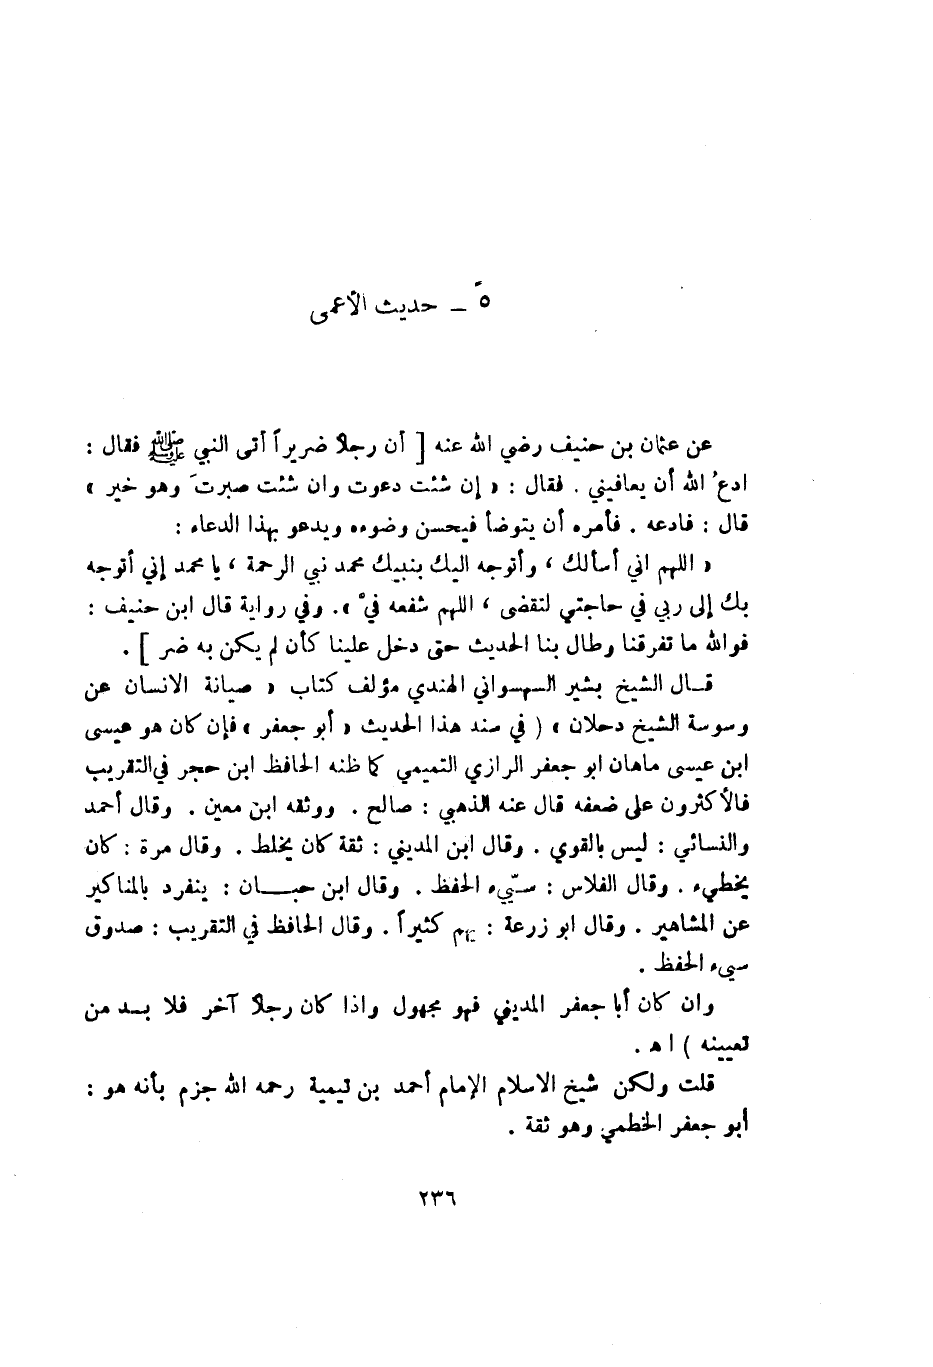 ٥ – حديث الأعمى
عن عثمان بن حنيف رضي الله عنه [ أن رجلا ضريراً أتى النبي ﷺ فقال :
ادعُ الله أن يعافيني . فقال : « إن شئت دعوت وان شئت صبرتَ وهو خير »
قال : فادعه . فأمره أن يتوضأ فيحسن وضوءه ويدعو بهذا الدعاء :
« اللهم اني أسألك ، وأتوجه اليك بنبيك محمد نبي الرحمة ، يا محمد إني أتوجه
بك إلى ربي في حاجتي لتقضى ، اللهم شفعه فيّ ». وفي رواية قال ابن حنيف :
فوالله ما تفرقنا وطال بنا الحديث حتى دخل علينا كأن لم يكن به ضر ] .
قــال الشيخ بشير السهسواني الهندي مؤلف كتاب « صيانة الانسان عن
وسوسة الشيخ دحلان » ( في سند هذا الحديث « أبو جعفر » فإن كان هو عيسى
ابن عيسى ماهان ابو جعفر الرازي التميمي كما ظنه الحافظ ابن حجر في التقريب
فالأكثرون على ضعفه قال عنه الذهبي : صالح . ووثقه ابن معين . وقال أحمد
والنسائي : ليس بالقوي . وقال ابن المديني : ثقة كان يخلط . وقال مرة : كان
يخطيء . وقال الفلاس : سيّيء الحفظ . وقال ابن حبــان : ينفرد بالمناكير
عن المشاهير . وقال ابو زرعة : يهم كثيراً . وقال الحافظ في التقريب : صدوق
سيء الحفظ .
وان كان أبا جعفر المديني فهو مجهول واذا كان رجلاً آخر فلا بــد من
تعيينه ) ا ه .
قلت ولكن شيخ الاسلام الإمام أحمد بن تيمية رحمه الله جزم بأنه هو :
أبو جعفر الخطمي وهو ثقة .
٢٣٦